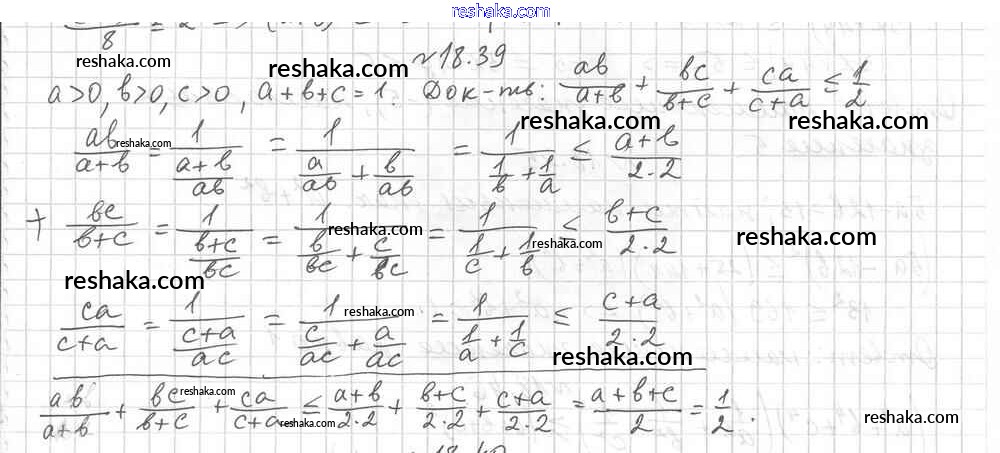 reshaka.com
8
№18.39
reshaka.com
a>0, b>0, c>0, a+b+c=1. Док-ть: ab/(a+b) + bc/(b+c) + ca/(c+a) ≤ 1/2
reshaka.com reshaka.com
ab/(a+b) = 1/((a+b)/ab) = 1/(a/ab + b/ab) = 1/(1/b + 1/a) ≤ (a+b)/(2·2)
reshaka.com
+ bc/(b+c) = 1/((b+c)/bc) = 1/(b/bc + c/bc) = 1/(1/c + 1/b) ≤ (b+c)/(2·2)
reshaka.com reshaka.com reshaka.com reshaka.com
ca/(c+a) = 1/((c+a)/ac) = 1/(c/ac + a/ac) = 1/(1/a + 1/c) ≤ (c+a)/(2·2)
reshaka.com reshaka.com
ab/(a+b) + bc/(b+c) + ca/(c+a) ≤ (a+b)/(2·2) + (b+c)/(2·2) + (c+a)/(2·2) = (a+b+c)/2 = 1/2.
reshaka.com reshaka.com reshaka.com